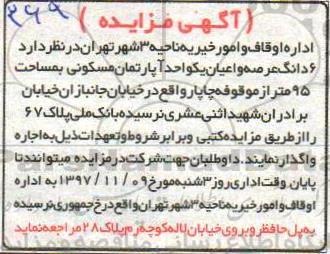 ۲۶۹
( آگهی مزایده )
اداره اوقاف و امور خیریه ناحیه ۳ شهر تهران در نظر دارد
۶ دانگ عرصه و اعیان یکواحد آپارتمان مسکونی بمساحت
۹۵ متر از موقوفه چاپار واقع در خیابان جانبازان خیابان
برادران شهید اثنی عشری نرسیده بانک ملی پلاک ۶۷
را از طریق مزایده کتبی و برابر شروط و تعهدات ذیل به اجاره
واگذار نمایند. داوطلبان جهت شرکت در مزایده میتوانند تا
پایان وقت اداری روز ۳ شنبه مورخ ۱۳۹۷/۱۱/۰۹ به اداره
اوقاف و امور خیریه ناحیه ۳ شهر تهران واقع در خ جمهوری نرسیده
به پل حافظ روبروی خیابان لاله کوچه زم پلاک ۲۸ مراجعه نماید